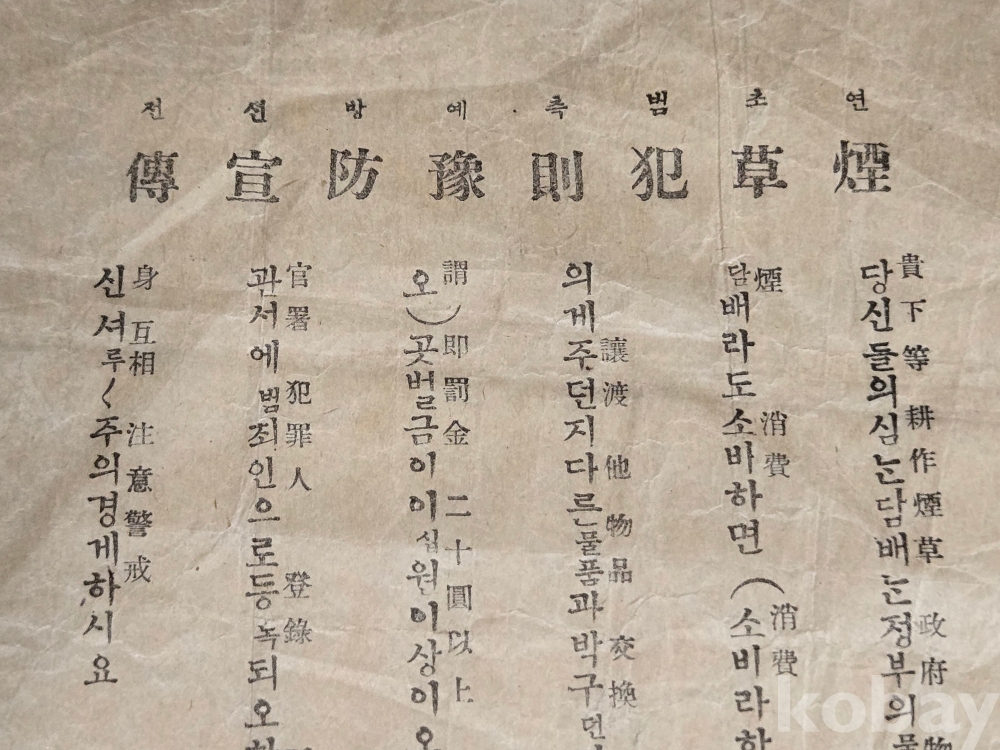 연초범측예방선전
煙草犯則豫防宣傳
貴下等 耕作煙草 政府 物
당신들의심는담배는정부의물
煙 消費 消費
담배라도소바하면 (소비라하
讓渡 他物品 交換
의게주던지다른물품과박구던
謂 即罰金 二十圓以上
오)곳벌금이이십원이상이오
官署 犯罪人 登錄
관서에범죄인으로등녹되오
身 互相 注意警戒
신셔루〱주의경게하시요
kobay